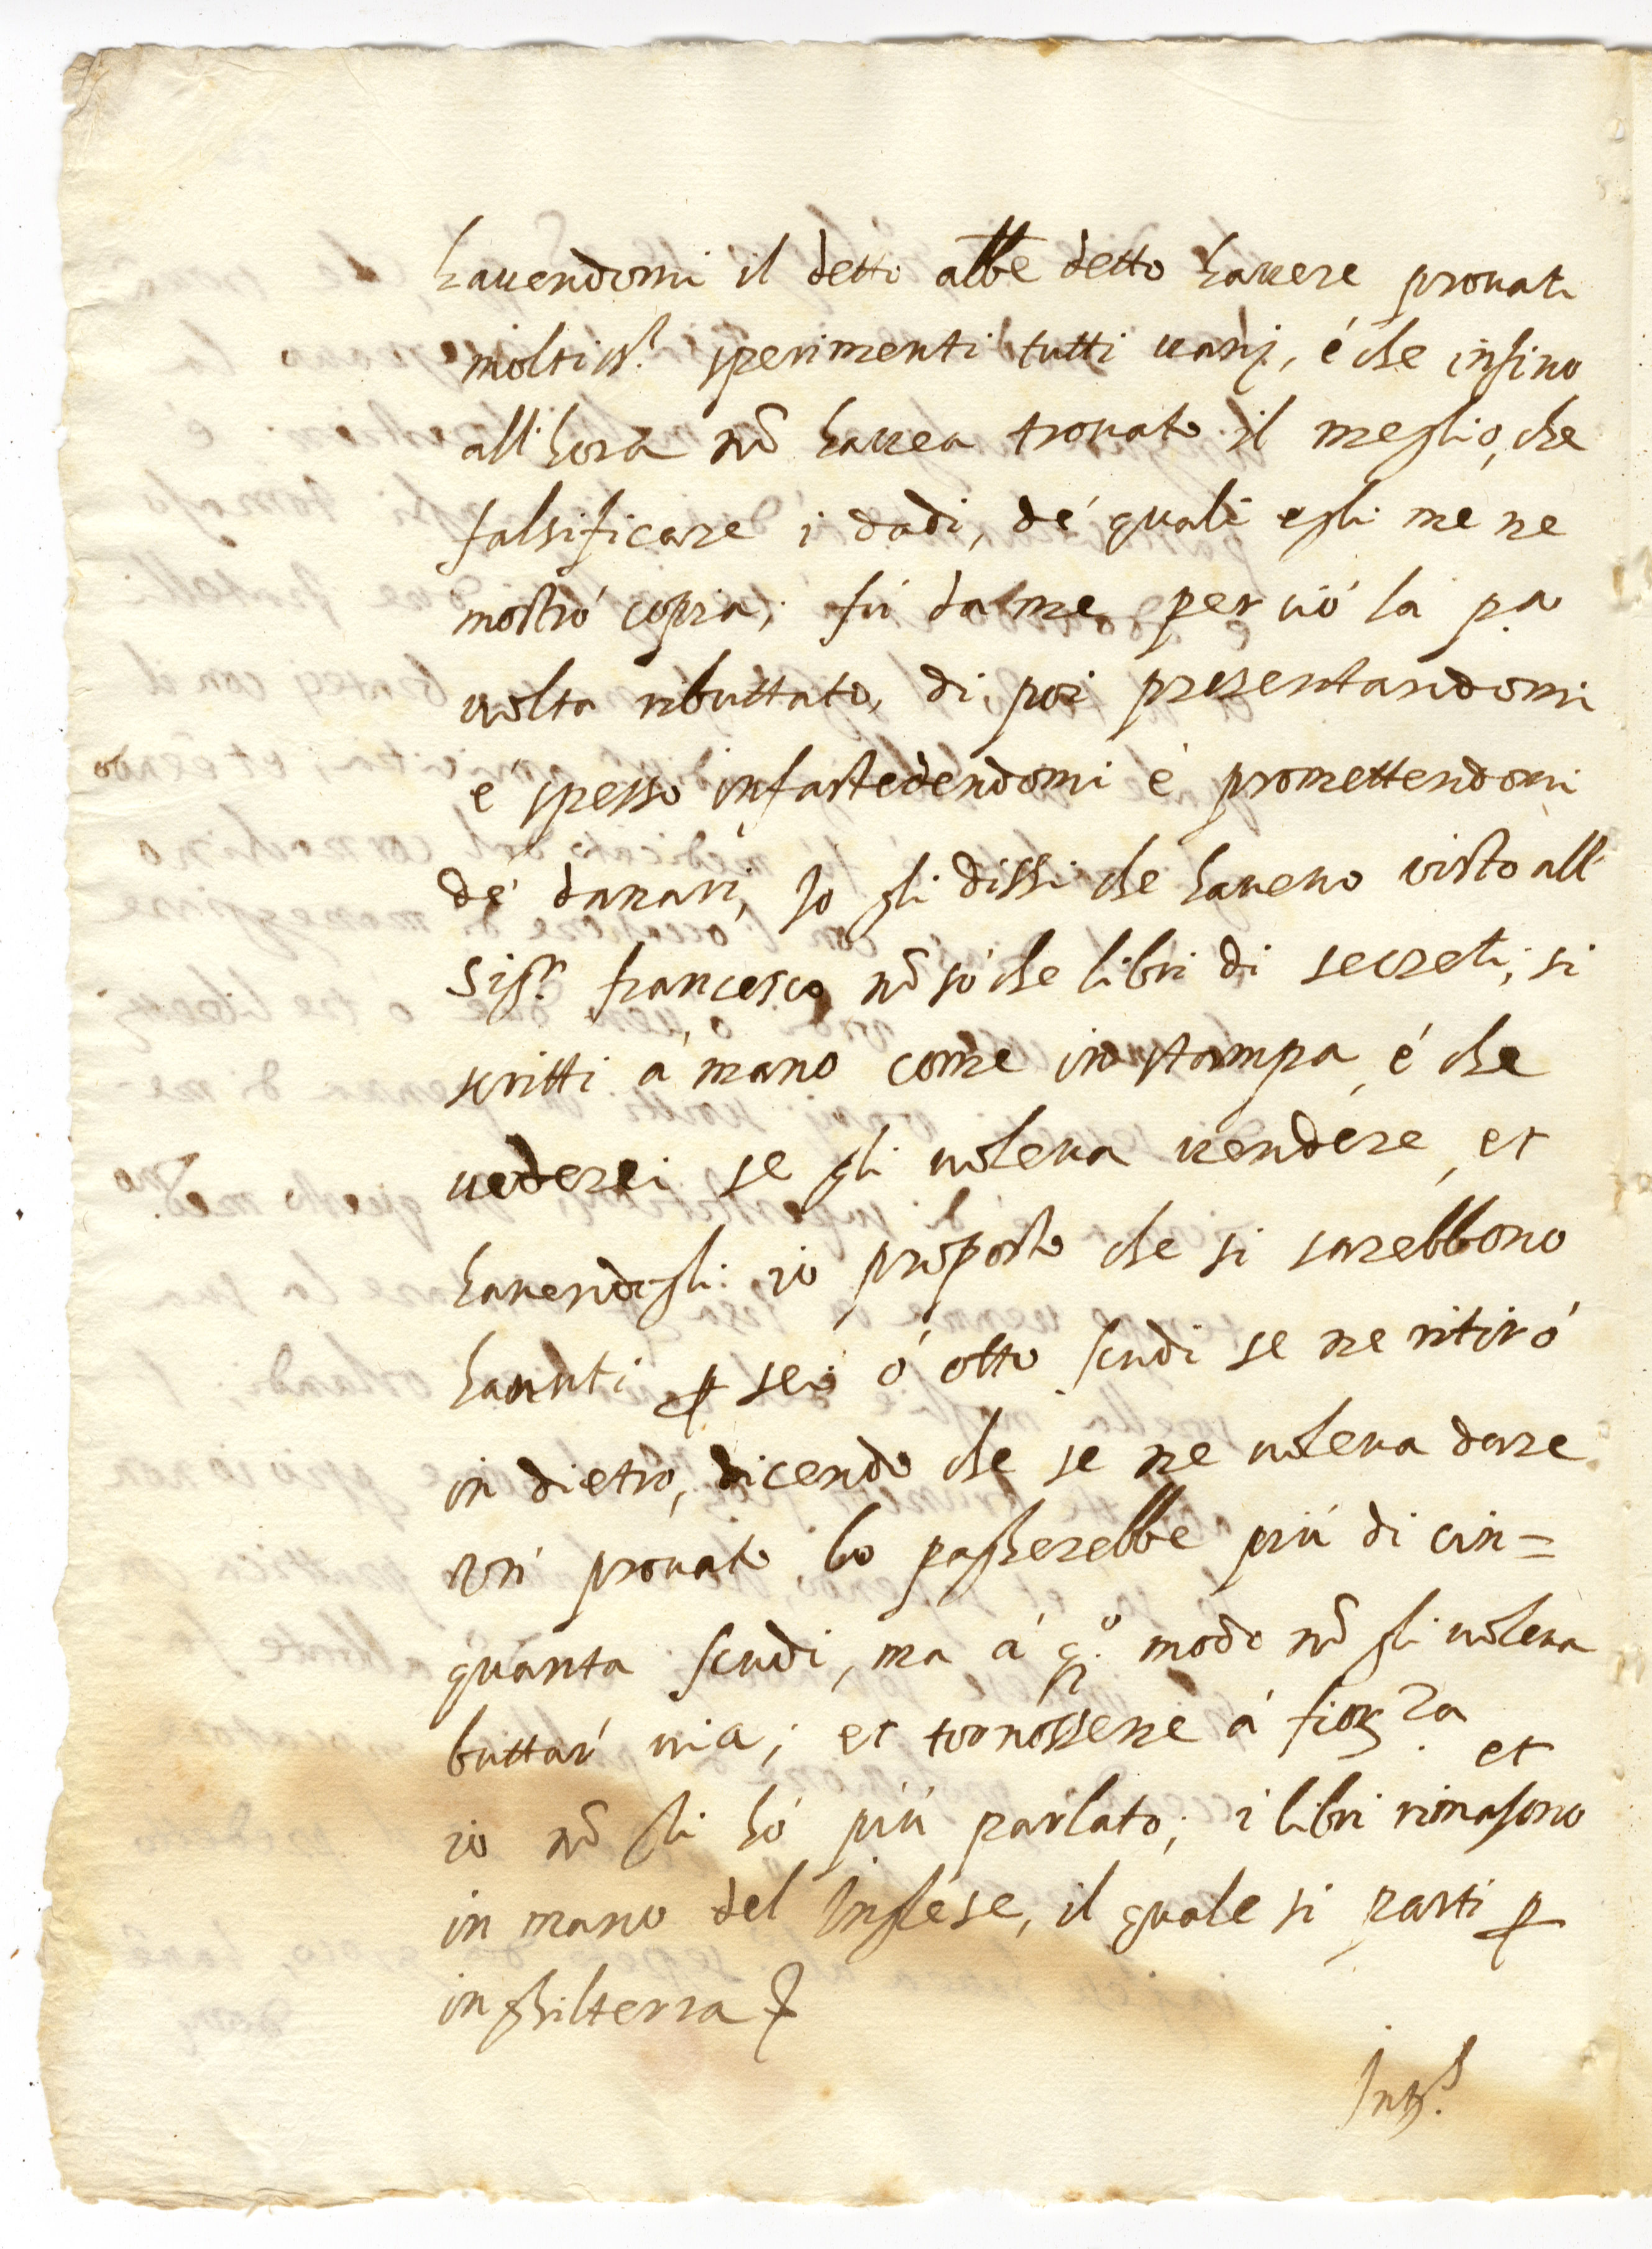 hauendomi il detto abbe detto hauere prouati
moltiss.i sperimenti tutti uanj, é che insino
all'hora nõ hauea trouato il meglio, che
falsificare i dadi, de' quali egli me ne
mostró copia; fú da me perció la pa
uolta ributtato, di poi presentandomi
e' spesso infastedendomi é promettendomi
de' danari, Io gli dissi che haueuo visto all'
Sigr. francesco nõ só che libri di secreti, si
scritti á mano come in stampa, é che
uederei se gli uoleua uendere, et
hauendogli io proposto che si sarebbono
hauuti ꝑ sei ó otto scudi se ne ritiró
in dietro, dicendo che se ne uoleua dare
un' prouato lo passerebbe piú di cin=
quanta scudi, ma á q.o modo nõ gli uoleua
buttar' uia; et tornossene á fior.za et
io nõ gli hó piú parlato; i libri rimasono
in mano del Inglese, il quale si partí ꝑ
inghilterra